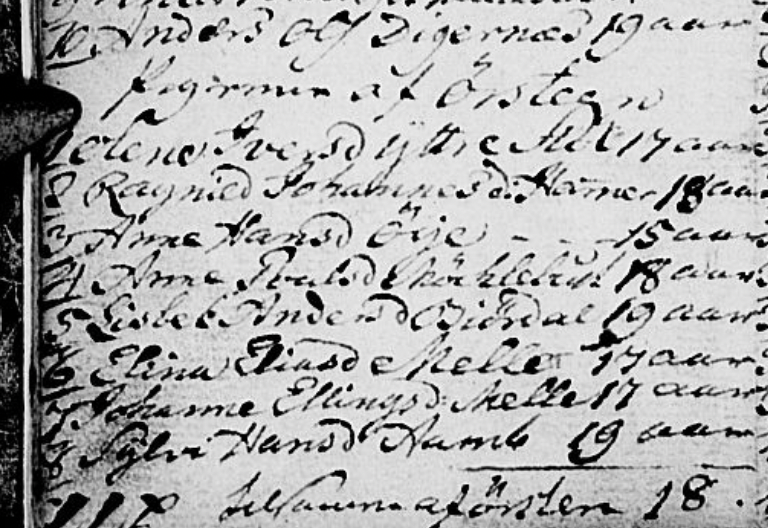 10 Anders Ols Digernæs 19 aar
Pigerne af Örsteen
1 Olene Iversd yttre 17 aar
2 Ragnied Johannesd: Hamer 18 aar
3 Anne Hansd Öÿe - - - 15 aar
4 Anne 18 aar
5 Lisbet Andersd Biördal 19 aar
6 Elina Eliasd Melle 17 aar
7 Johanne Ellingsd: Melle 17 aar
8 Sylvi Hansd 19 aar
af örsten 18.